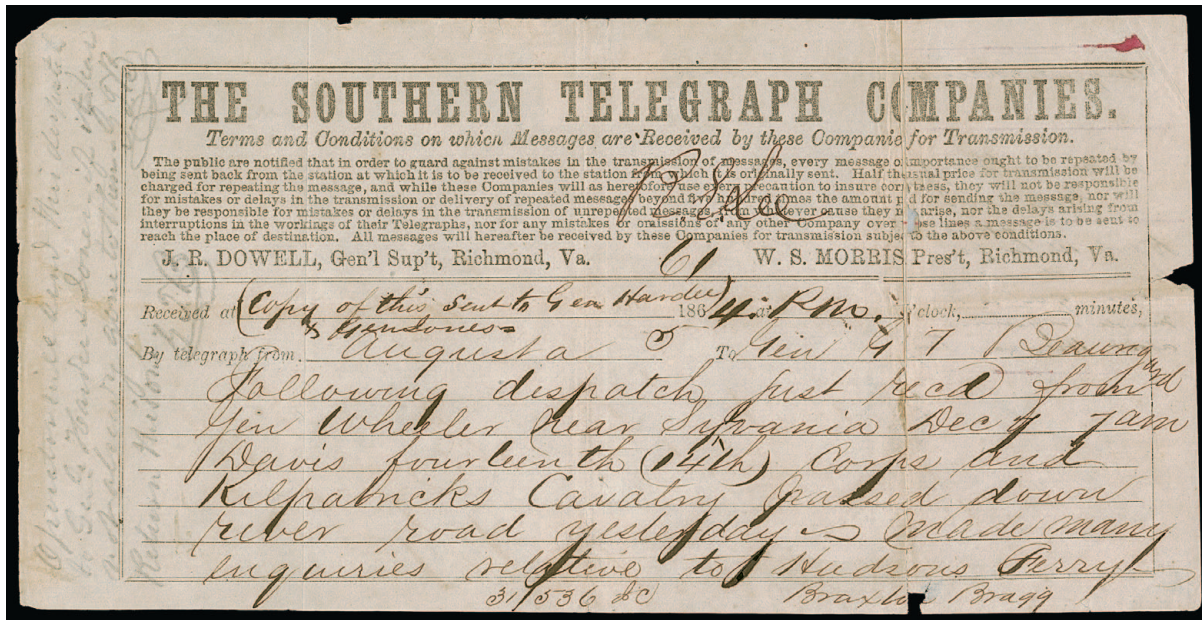 THE SOUTHERN TELEGRAPH COMPANIES.
Terms and Conditions on which Messages are Received by these Companie for Transmission.
The public are notified that in order to guard against mistakes in the transmission of messages, every message of importance ought to be repeated by
being sent back from the station at which it is to be received to the station from which it is originally sent. Half the usual price for transmission will be
charged for repeating the message, and while these Companies will as heretofore use every precaution to insure correctness, they will not be responsible
for mistakes or delays in the transmission or delivery of repeated messages beyond five hundred times the amount paid for sending the message, nor will
they be responsible for mistakes or delays in the transmission of unrepeated messages, from whatever cause they may arise, nor the delays arising from
interruptions in the workings of their Telegraphs, nor for any mistakes or omissions of any other Company over whose lines a message is to be sent to
reach the place of destination. All messages will hereafter be received by these Companies for transmission subject to the above conditions.
J. R. DOWELL, Gen'l Sup't, Richmond, Va. 61 W. S. MORRIS Pres't, Richmond, Va.
Received at (Copy of this sent to Gen Hardee) 1864 at P.m. o'clock, minutes,
& Gen Jones
By telegraph from Augusta 5 To Gen G T Beauregard
Following despatch just recd from
Gen Wheeler near Sylvania Dec 7 7am
Davis fourteenth (14th) Corps and
Kilpatricks Cavalry passed down
river road yesterday Made many
enquiries relative to Hudsons Ferry
31/536 Braxton Bragg
Operator will send this despatch
to Genl Hardee & Jones if it has
not already gone to them
Return this only